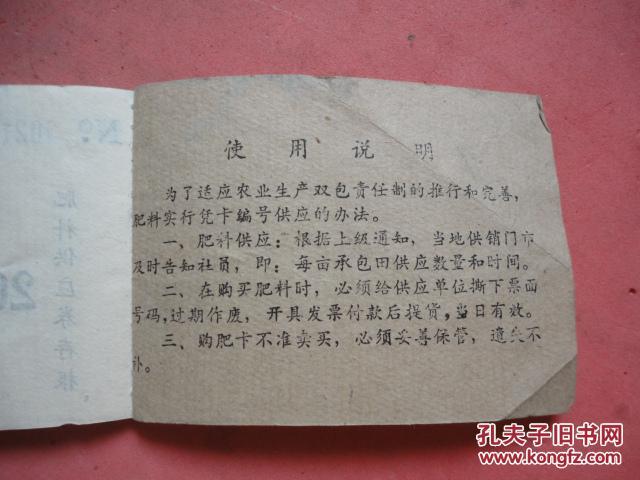 使用说明
为了适应农业生产双包责任制的推行和完善,
肥料实行凭卡编号供应的办法。
一、肥料供应:根据上级通知,当地供销门市
及时告知社员,即:每亩承包田供应数量和时间。
二、在购买肥料时,必须给供应单位撕下票面
号码,过期作废,开具发票付款后提货,当日有效。
三、购肥卡不准卖买,必须妥善保管,遗失不
补。
№ 1021
肥料供应券存根
20
孔夫子旧书网
www.kongfz.com